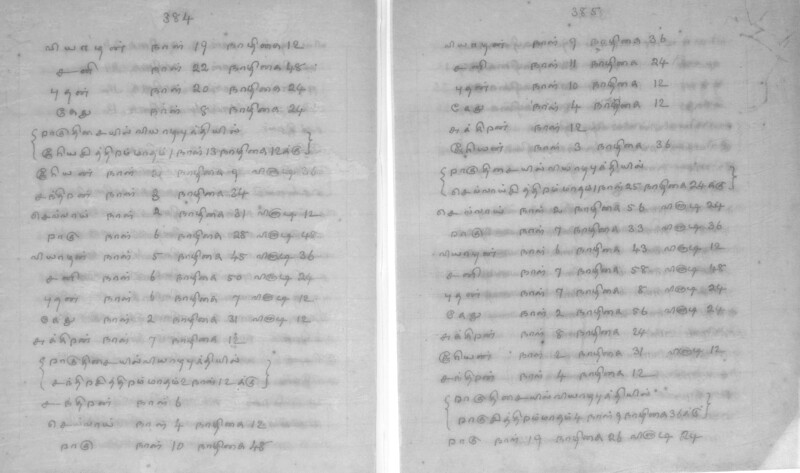 384
வியாழன் நாள் 19 நாழிகை 12
சனி நாள் 22 நாழிகை 48
புதன் நாள் 20 நாழிகை 24
கேது நாள் 8 நாழிகை 24
{ராகுதிசையில்வியாழபுத்தியில்
சூரியசித்திரம்மாதம்1நாள்13நாழிகை12க்கு}
சூரியன் நாள் 2 நாழிகை 9 விநாடி 36
சந்திரன் நாள் 3 நாழிகை 34
செவ்வாய் நாள் 2 நாழிகை 31 விநாடி 12
ராகு நாள் 6 நாழிகை 28 விநாடி 48
வியாழன் நாள் 5 நாழிகை 45 விநாடி 36
சனி நாள் 6 நாழிகை 50 விநாடி 24
புதன் நாள் 6 நாழிகை 7 விநாடி 12
கேது நாள் 2 நாழிகை 31 விநாடி 12
சுக்கிரன் நாள் 7 நாழிகை 12
{ராகுதிசையில்வியாழபுத்தியில்
சந்திரசித்திரம்மாதம்2நாள்12க்கு}
சந்திரன் நாள் 6
செவ்வாய் நாள் 4 நாழிகை 12
ராகு நாள் 10 நாழிகை 48
385
வியாழன் நாள் 9 நாழிகை 36
சனி நாள் 11 நாழிகை 24
புதன் நாள் 10 நாழிகை 12
கேது நாள் 4 நாழிகை 12
சுக்கிரன் நாள் 12
சூரியன் நாள் 3 நாழிகை 36
{ராகுதிசையில்வியாழபுத்தியில்
செவ்வாய்சித்திரம்மாதம்1நாள்25நாழிகை24க்கு}
செவ்வாய் நாள் 2 நாழிகை 56 விநாடி 24
ராகு நாள் 7 நாழிகை 33 விநாடி 36
வியாழன் நாள் 6 நாழிகை 43 விநாடி 12
சனி நாள் 7 நாழிகை 58 விநாடி 48
புதன் நாள் 7 நாழிகை 8 விநாடி 24
கேது நாள் 2 நாழிகை 56 விநாடி 24
சுக்கிரன் நாள் 8 நாழிகை 24
சூரியன் நாள் 2 நாழிகை 31 விநாடி 12
சந்திரன் நாள் 4 நாழிகை 12
{ராகுதிசையில்வியாழபுத்தியில்
ராகுசித்திரம்மாதம்4நாள்9நாழிகை36க்கு}
ராகு நாள் 19 நாழிகை 26 விநாடி 24